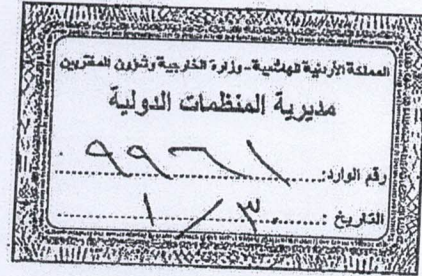 المملكة الأردنية الهاشمية - وزارة الخارجية وشؤون المغتربين
مديرية المنظمات الدولية
رقم الوارد: ٩٩٦١
التاريخ : ٣ / ١